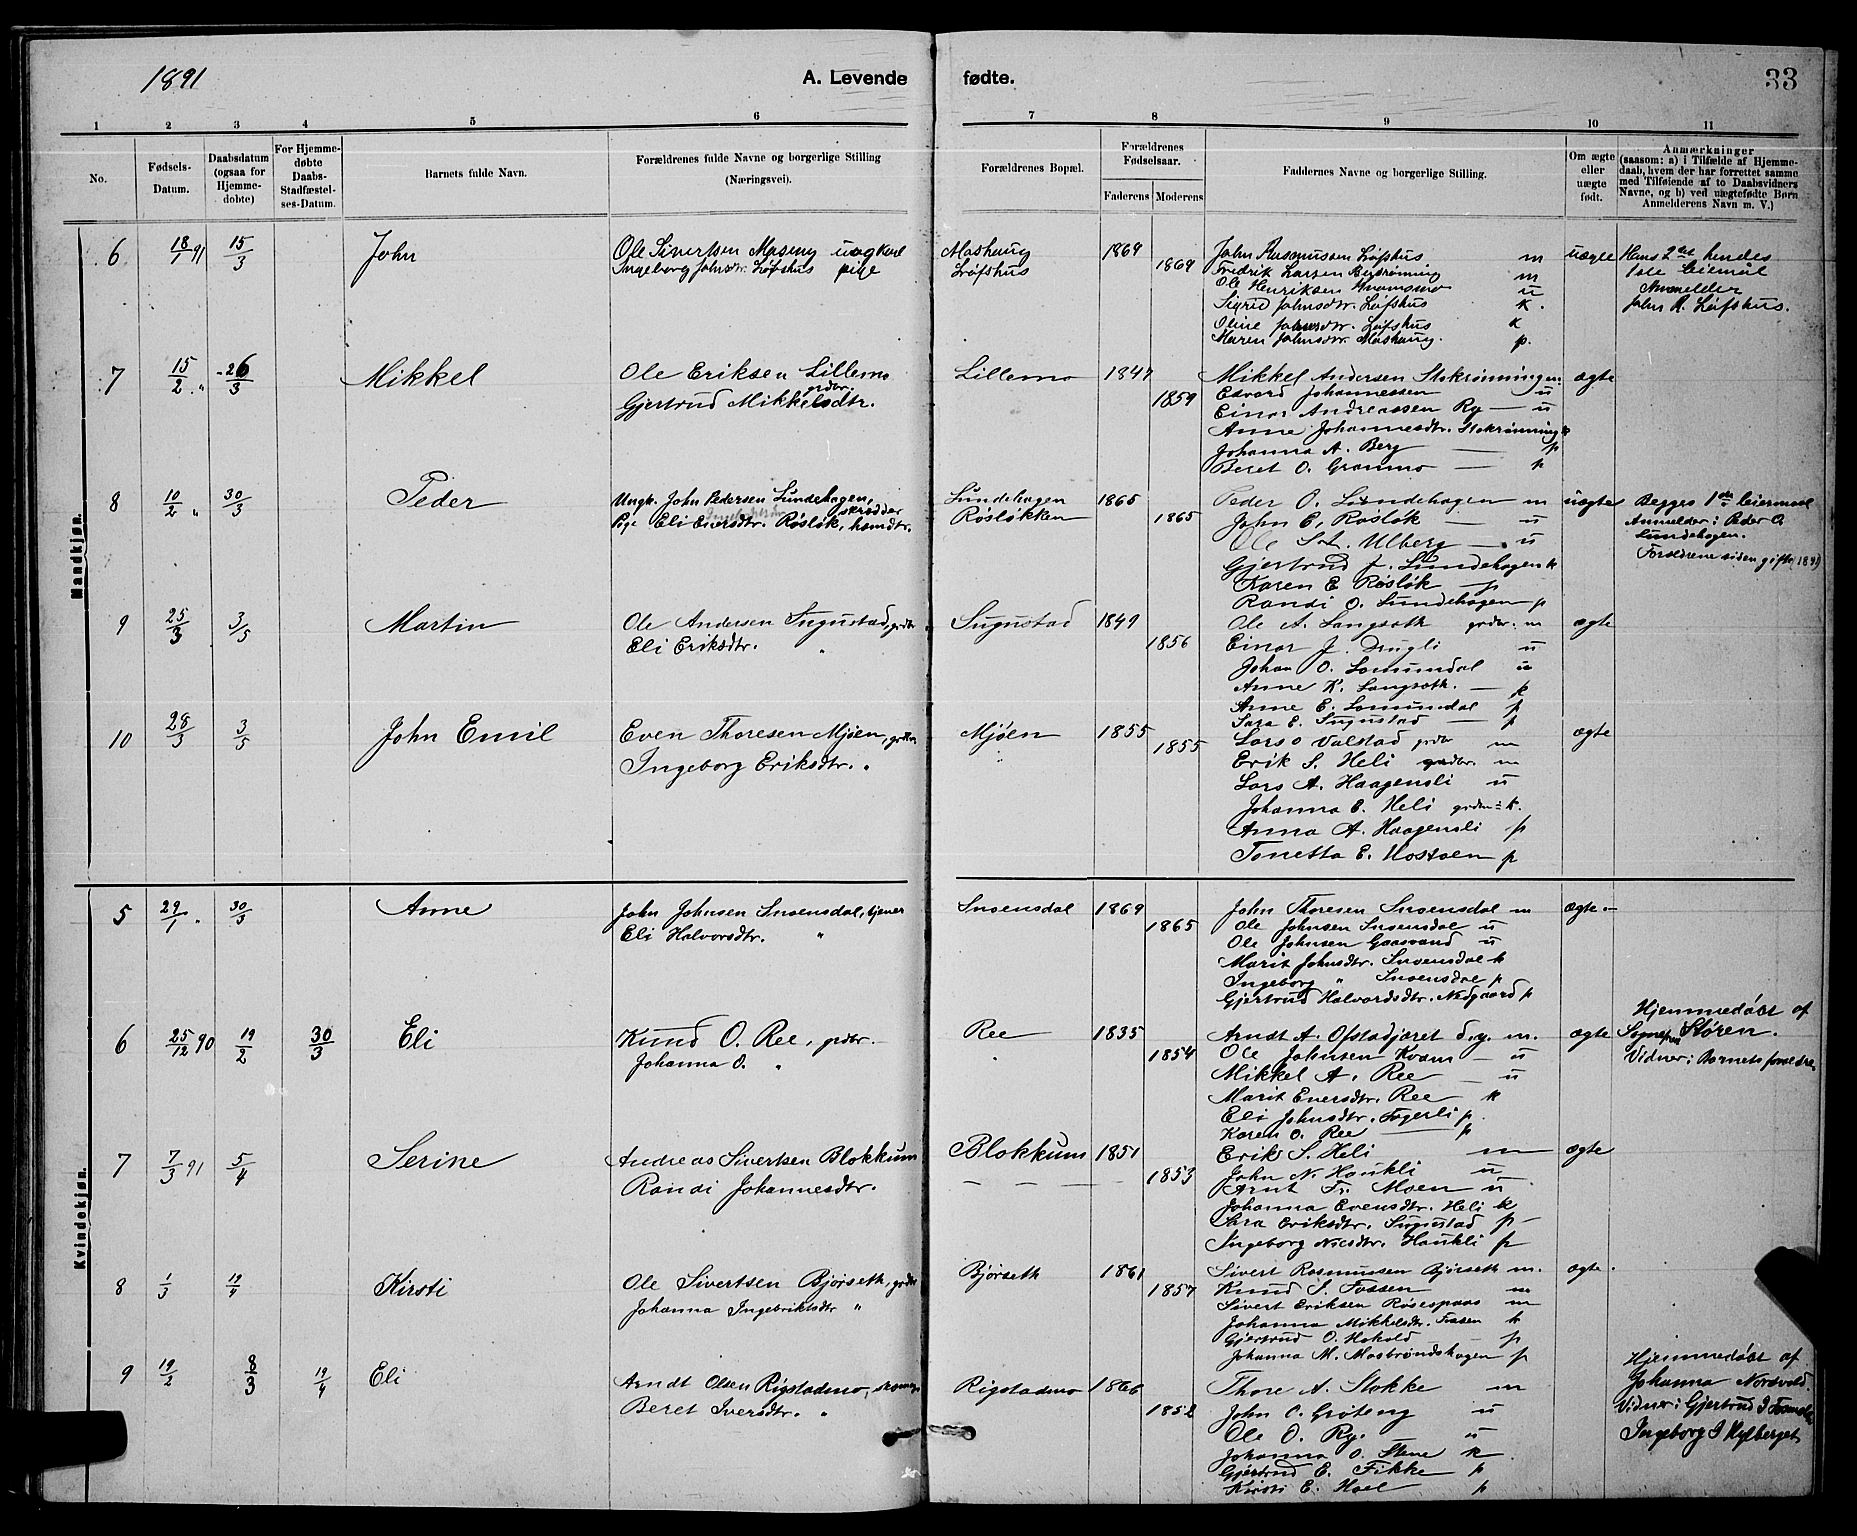 1891 A. Levende fødte. 33
1 2 3 4 5 6 7 8 9 10 11
No. Fødsels-Datum. Daabsdatum (ogsaa for Hjemmedøbte) For Hjemmedøbte Daabs-Stadfæstelses-Datum. Barnets fulde Navn. Forældrenes fulde Navne og borgerlige Stilling (Næringsvei). Forældrenes Bopæl. Forældrenes Fødselsaar. Faderens Moderens Faddernes Navne og borgerlige Stilling. Om ægte eller uægte født. Anmærkninger (saasom: a) i Tilfælde af Hjemmedaab, hvem der har forrettet samme med Tilføiende af to Daabsvidners Navne, og b) ved uægtefødte Børn Anmelderens Navn m. V.)
Mandkjøn.
6 18/1 91 15/3 John Ole Sivertsen Mosung ungkarl Moshaug 1869 John Rasmussen Løfshus m uægte Hans 2det hendes
Ingeborg Johnsdtr. Løfshus pige Løfshus 1869 Fredrik Larsen m 1ste Leiemål
Ole Henriksen u Anmelder
Sigrid Johnsdtr. Løfshus k. John R. Løfshus.
Oline Johnsdtr. Løfshus k
Maren Johnsdtr. Moshaug. p.
7 15/2 " 26/3 Mikkel Ole Eriksen Lillemo Lillemo 1847 Mikkel Andersen Stokrønningen ægte
grdbr.
Gjertrud Mikkelsdtr. 1859 Edvard Johannessen u
Einar Andreassen Ry — u
Anne Johannesdtr. Stokrønning k
Johanna A. Berg — p
Beret O. Grammo — p
8 10/2 " 30/3 Peder Ungk. John Pedersen Lundehagen, skrædder Lundehagen 1865 Peder O. Lundehagen m uægte Begges 1ste Leiermaal
Pige Eli Eversdtr. Røsløk, husmdtr. Røsløkken 1865 John E. Røsløk — u Anmelder: Peder O.
Ole S. Ulberg — u Lundehagen.
Gjertrud J. Lundehagen k Forældrene siden gifte (1891)
Karen E. Røsløk — p
Randi O. Lundehagen p
9 25/3 3/5 Martin Ole Andersen Sugustad, grdbr Sugustad 1849 Ole A. Langsæth grdbr. m ægte
Eli Eriksdtr. " 1856 Einar J. Drugli u
Johan O. Lomundal u
Anne K. Langsæth. — k
Anne E. Lomundal p
Sara E. Sugustad — p
10 28/3 3/5 John Emil Even Thoresen Mjøen, grdbr. Mjøen 1855 Lars O Valstad grdbr m ægte
Ingeborg Eriksdtr. " " 1855 Erik S. Heli grdbr. m
Lars A. Haagensli u
Johanna E. Heli k.
Anna A. Haagensli p
Tonetta E. Hostoen p
Kvindekjøn.
5 29/1 " 30/3 Anne John Johnsen Snoensdal, tjener Snoensdal 1869 John Thoresen Snoensdal m ægte.
Eli Halvorsdtr. " 1865 Ole Johnsen Snoensdal u
Ole Johnsen Gaasvand u
Marit Johnsdtr. Snoensdal k
Ingeborg " Snoensdal p
Gjertrud Halvordsdtr. Nedgaard p
6 25/12 90 19/2 30/3 Eli Knud O. Ree, grdbr. Ree 1835 Arndt A. Ofstadjæret m. ægte Hjemmedøbt af
Johanna O. " " 1854 Ole Johnsen Kvam — u Sognepr. Støren.
Mikkel A. Ree — u Vidner: Barnets forældre.
Marit Eversdtr. Ree k
Eli Johnsdtr. Fagerli p.
Karen O. Ree — p
7 7/3 91 5/4 Serine Andreas Sivertsen Blokkum Blokkum 1851 Erik S. Heli m ægte
Randi Johannesdtr. 1853 John N. Haukli u
Arnt Tr. Moen u
Johanna Evensdtr. Heli k
Sara Eriksdtr. Sugustad p
Ingeborg Nilsdtr. Haukli p
8 1/3 19/4 Kirsti Ole Sivertsen Bjørseth, grdbr Bjørseth 1861 Sivert Rasmussen Bjørseth m. ægte.
Johanna Ingebriktsdtr " 1857 Knud S. Fossen m
Sivert Eriksen m
Johanna Mikkelsdtr. Fossen k
Gjertrud O. Hokold — p
Johanna M. Mosbrøndshagen p
9 19/2 8/3 19/4 Eli Arndt Olsen Rigstadmo, Rigstadmo 1866 Thore A. Stokke m Hjemmedøbt af
Beret Iversdtr. " 1852 John O. Grøteng u Johanna Nordvold.
Ole O. Ry. u Vidner: Gjertrud
Johanna O. Stene k Ingeborg
Gjertrud E. Fikke p
Kirsti E. Hoel p